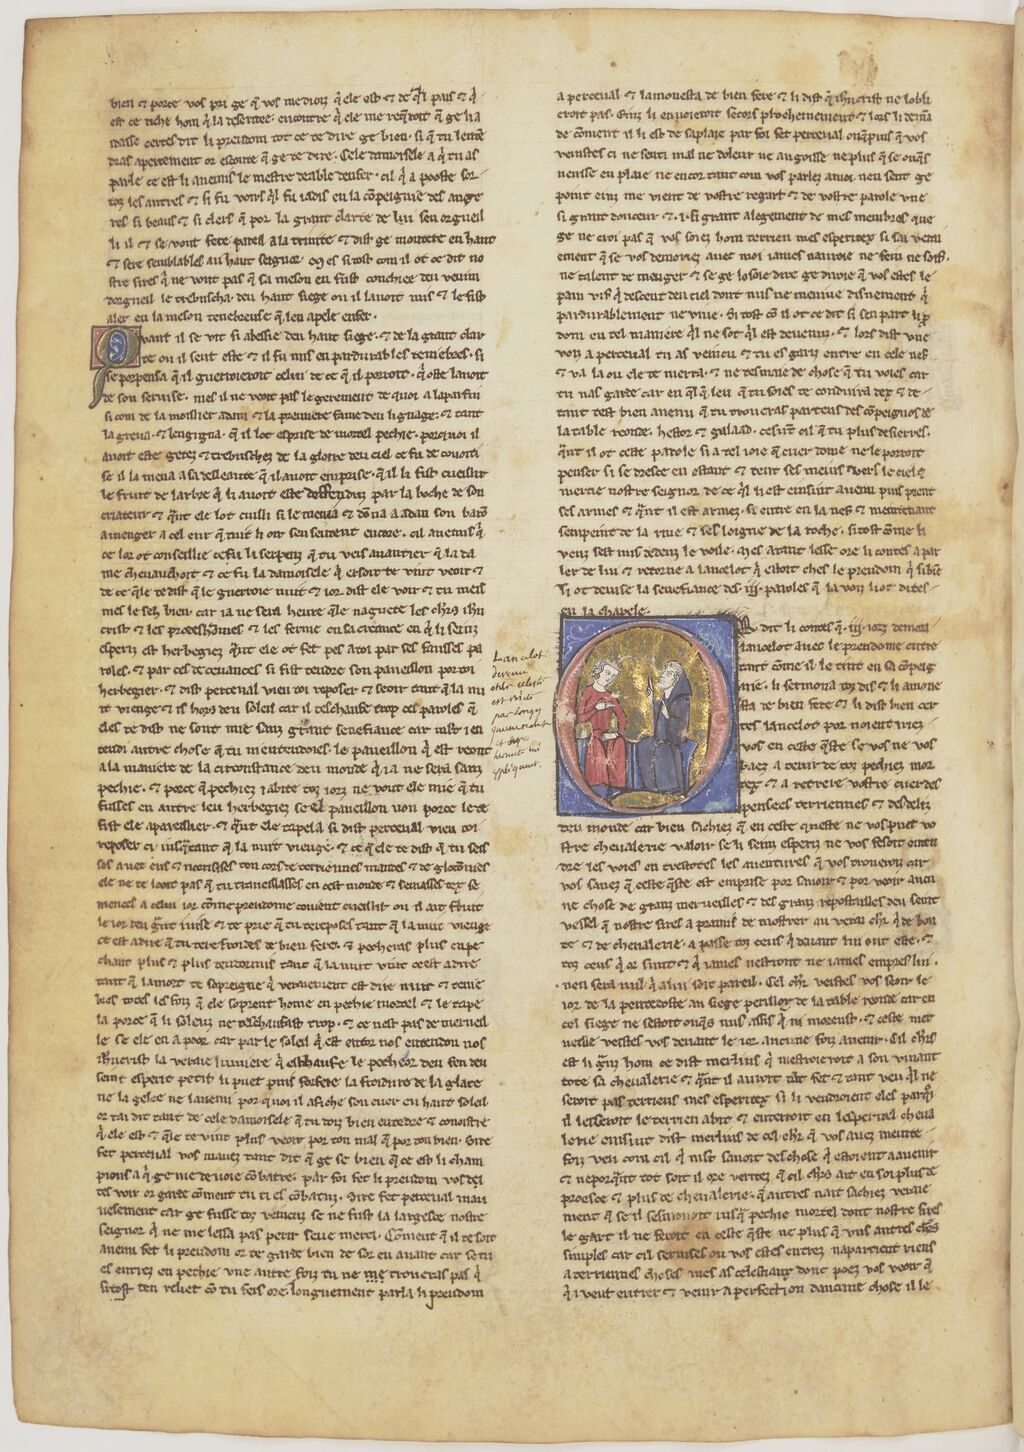 bien ⁊ porce vos pri ge q̃ vos me dioiz q̃ ele est ⁊ de q̃l pais ⁊ q̃
est ce riche hom q̃ la deseritee. encontre q̃ ele me req̃roit q̃ ge li a
idasse certes dit li preudom tot ce te dire ge bien. si q̃ tu lenten
dras apertement or escoute q̃ ge te dire. Cele damoisele a q̃ tu as
parle ce est li anemis le mestre deable denfer. cil q̃ a pooste sor
toz les autres ⁊ si fu voirs q̃l fu iadis en la cõpeignie des ange
res si beaus ⁊ si clers q̃ por la grant clarte de lui sen orgueil
li il ⁊ se vout fere pareil a la trinite ⁊ dist ge montere en haut
⁊ sere semblables au haut seignor. Mes si tost com il ot ce dit no
stre sires q̃ ne vout pas q̃ sa meson en fust conchiee deu venin
dorgueil le trebuscha. deu haut siege ou il lavoit mis ⁊ le fist
aler en la meson tenebreuse q̃ len apele enfer.
Quant il se vit si abessie deu haut siege. ⁊ de la grant clar
te ou il seut estre ⁊ il fu mis en pardurables tenebres. si
se porpensa q̃ il guerroieroit celui de ce q̃ il porroit. q̃ oste lavoit
de son servise. mes il ne veoit pas legerement de quoi a la parfin
si com de la moillier adam ⁊ la premiere fame deu lignage. ⁊ tant
la greva. ⁊ lengigna. q̃ il lot esprise de mortel pechie. por quoi il
avoit este getez ⁊ trebuschez de la gloire deu ciel ce fu de covoiti
se il la mena a sa desleaute q̃ il avoit emprise. q̃ il li fist cueillir
le fruit de larbre q̃ li avoit este deffenduz par la boche de son
criateur ⁊ q̃nt ele lot cuilli si le menia ⁊ dõna a adan son barõ
a menger a cel eur q̃ tuit li oir sen sentent encore. cil anemis q̃
ce lor ot conseillie ce fu li serpenz q̃ tu veis avantier q̃ la da
me chevauchoit ⁊ ce fu la damoisele q̃ ersoir te vint veoir ⁊
de ce q̃ le te dist q̃ le guerroie nuit ⁊ ior. dist ele voir ⁊ tu meis
mes le sez bien. car ia ne sera heure q̃ le naguete les chr̃s ihu
crist ⁊ les prodeshõmes ⁊ les
esperiz est herbegiez q̃nt ele ot fet pes a toi par ses fausses pa
roles. ⁊ par ces decevances si fist tendre son paveillon por toi
herbegier. ⁊ dist perceval vien toi reposer ⁊ seoir tant q̃ la nu
it vienge ⁊ is hors deu soleil car il teschaufe trop ces paroles q̃
eles te dist ne sont mie sanz grant senefiance car mlt i en
tendi autre chose q̃ tu ni entendoies. le paveillon q̃ est reont
a la maniere de la circonstance deu monde q̃ ia ne sera sanz
pechie. ⁊ porce q̃ pechiez i abite toz iorz ne vout ele mie q̃ tu
fusses en autre leu herbegiez se el paveillon non porce le te
fist ele apareillier. ⁊ q̃nt ele tapela si dist perceval vien toi
reposer ci iusq̃tant q̃ la nuit vienge. ⁊ ce q̃ ele te dist q̃ tu seis
ses avec eus ⁊ norrisses ton cors de terriennes viandes ⁊ de glotonies
ele ne te loot pas q̃ tu travellasses en cest monde ⁊ semasses tex se
mences a celui ior cõme preudome covient cueillir ou il ait fruit
le ior deu grant iuise ⁊ te prie q̃ tu te reposes tant q̃ la nuit vienge
ce est a dire q̃ tu te refroides de bien fere. ⁊ pecheras plus en pe
chant plus ⁊ plus dendormis tant q̃ la nuit vint ce est a dire
tant q̃ la mort te sopreigne q̃ veraiement est dite nuit ⁊ tene
bres totes les foiz q̃ ele soprent home en pechie mortel ⁊ le tape
la porce q̃ li soleuz ne teschaufast trop. ⁊ ce nest pas de merveil
le se ele en a poor car par le soleil q̃ est entor nos entendon nos
ihucrist la veraie lumiere q̃ eschaufe le pecheor deu feu deu
seint esperit petit li puet puis forfere la froidure de la glace
ne la gelee ne lanemi por quoi il afiche son cuer en haut soleil
or tai dit tant de cele damoisele q̃ tu doiz bien entedre ⁊ conoistre
q̃ ele est ⁊ q̃ le te vint plus veoir por ton mal q̃ por ton bien. Sire
fet perceval vos mavez tant dit q̃ ge se bien q̃ ce est li cham
pions a q̃ ge me devoie cõbatre. par foi fet li preudom vos dei
tes voir or garde cõment tu ti es cõbatuz. Sire fet perceval mau
vesement car ge fusse toz vencuz se ne fust la largesce nostre
seignor q̃ ne me lessa pas perir seue merci. Coment q̃ il te soit
avenu fet li preudom or te garde bien de sor en avant car se tu
es entrez en pechie une autre foiz tu ne me troveras pas q̃
si tost ten reliet cõ tu feis ore. longuement parla li preudom
a perceval ⁊ lamonesta de bien fere ⁊ li dist q̃ ihucrist ne lobli
eroit pas. Einz li envoieroit secors prochenement ⁊ lors li demã
da cõment il li est de sa plaie par foi fet perceval onq̃s puis q̃ vos
venistes ci ne senti mal ne doleur ne angoisse ne plus q̃ se onq̃s
neusse eu plaie ne encor tant com vos parlez a moi nen sent ge
point einz me vient de vostre regart ⁊ de vostre parole une
si grant douceur ⁊ .i. si grant alegement de mes menbres que
ge ne croi pas q̃ vos soiez hom terrien mes esperitex si sai verai
ement q̃ se vos demoriez avec moi iames navroie ne fein ne soif.
ne talent de menger ⁊ se ge losoie dire ge diroie q̃ vos estes le
pain vis q̃ descent deu ciel dont nus ne meniue disnement q̃
pardurablement ne vive. Si tost cõ il ot ce dit si sen part li p
dom en tel maniere q̃l ne sot q̃l est devenuz. ⁊ lors dist une
voiz a perceval tu as vencu ⁊ tu es gariz entre en cele nes
⁊ va la ou ele te merra. ⁊ ne tesmaie de chose q̃ tu voies car
tu nas garde car en q̃l q̃ leu q̃ tu soies te conduira dex ⁊ de
tant test bien avenu q̃ tu troveras par tens des cõpeignos de
la table reonde. hestor ⁊ galaad. ce sunt cil q̃ tu plus desirres.
q̃nt il ot ceste parole si a tel ioie q̃ cuer dome ne le porroit
penser si se dresce en estant ⁊ tent ses meins vers le ciel ⁊
mercie nostre seignor de ce q̃l li est einsint avenu puis prent
ses armes ⁊ q̃nt il est armez. si entre en la nes ⁊ meintenant
senpeint de la rive ⁊ sesloigne de la roche. si tost cõme li
venz sest mis dedenz le voile. Mes atant lesse ore li contes a par
ler de lui ⁊ retorne a lancelot q̃ estoit ches le preudom q̃ si biẽ
li ot devise la senefiance des .iij. paroles q̃ la voiz li ot dites
en la chapele.
Or dit li contes q̃ .iij. iorz demora
lancelot avec le preudome entre
tant cõme il le tint en sa cõpeig
nie. li sermona toz dis ⁊ li amone
sta de bien fere ⁊ li dist bien cer
tes lancelot por noient iriez
vos en ceste q̃ste se vos ne vos
baez a tenir de toz pechiez mor
tex ⁊ a retrere vostre cuer des
pensees terriennes ⁊ des deliz
deu monde car bien sachiez q̃ en ceste queste ne vos puet vo
stre chevalerie valoir se li seinz esperiz ne vos fesoit outen
dre les voies en trestotes les aventures q̃ vos troveroiz car
vos savez q̃ ceste q̃ste est emprise por savoir ⁊ por veoir aucu
ne chose de granz merveilles ⁊ des granz repostailles deu seint
vessel q̃ nostre sires a pramis de mostrer au verai chr̃ q̃ de bon
te ⁊ de chevalerie. a passe toz ceus q̃ devant lui ont este. ⁊
toz ceus q̃ or sunt ⁊ q̃ iames nestront ne iames empres lui.
nen sera nul q̃ a lui soit pareil. Cel chr̃ veistes vos seoir le
ior de la pentecoste au siege perilloz de la table reonde car en
cel siege ne sestoit onq̃s nus assis q̃ ni moreust. ⁊ ceste mer
veille veistes vos devant le ior aucune foiz avenir. Cil chr̃s
est li granz hom ce dist merlins q̃ mestroieroit a son vivant
tote sa chevalerie ⁊ q̃nt il avroit tãt fet ⁊ tant veu q̃l ne
seroit pas terriens mes esperitex si li vendroient eles
il lesseroit le terrien abit ⁊ enterroit en lesperital cheva
lerie einsint dist merlins de cel chr̃ q̃ vos avez meinte
foiz veu com cil q̃ mlt savoit des chose q̃ estoient a avenir
⁊ neporq̃nt tot soit il ore veritez q̃ cil chr̃s ait en soi plus de
proesce ⁊ plus de chevalerie. q̃ autres nait sachiez veraie
ment q̃ se il sesmovoit iusq̃ pechie mortel dont nostre sires
le gart il ne feroit en ceste q̃ste ne plus q̃ uns autres chr̃s
simples car cil servises ou vos estes entrez napartient riens
a terriennes choses mes as celestiaux dont poez vos veoir q̃
q̃ i veut entrer ⁊ venir a perfection daucune chose il le
Lancelot
devenu
chlr celeste
est visité
par